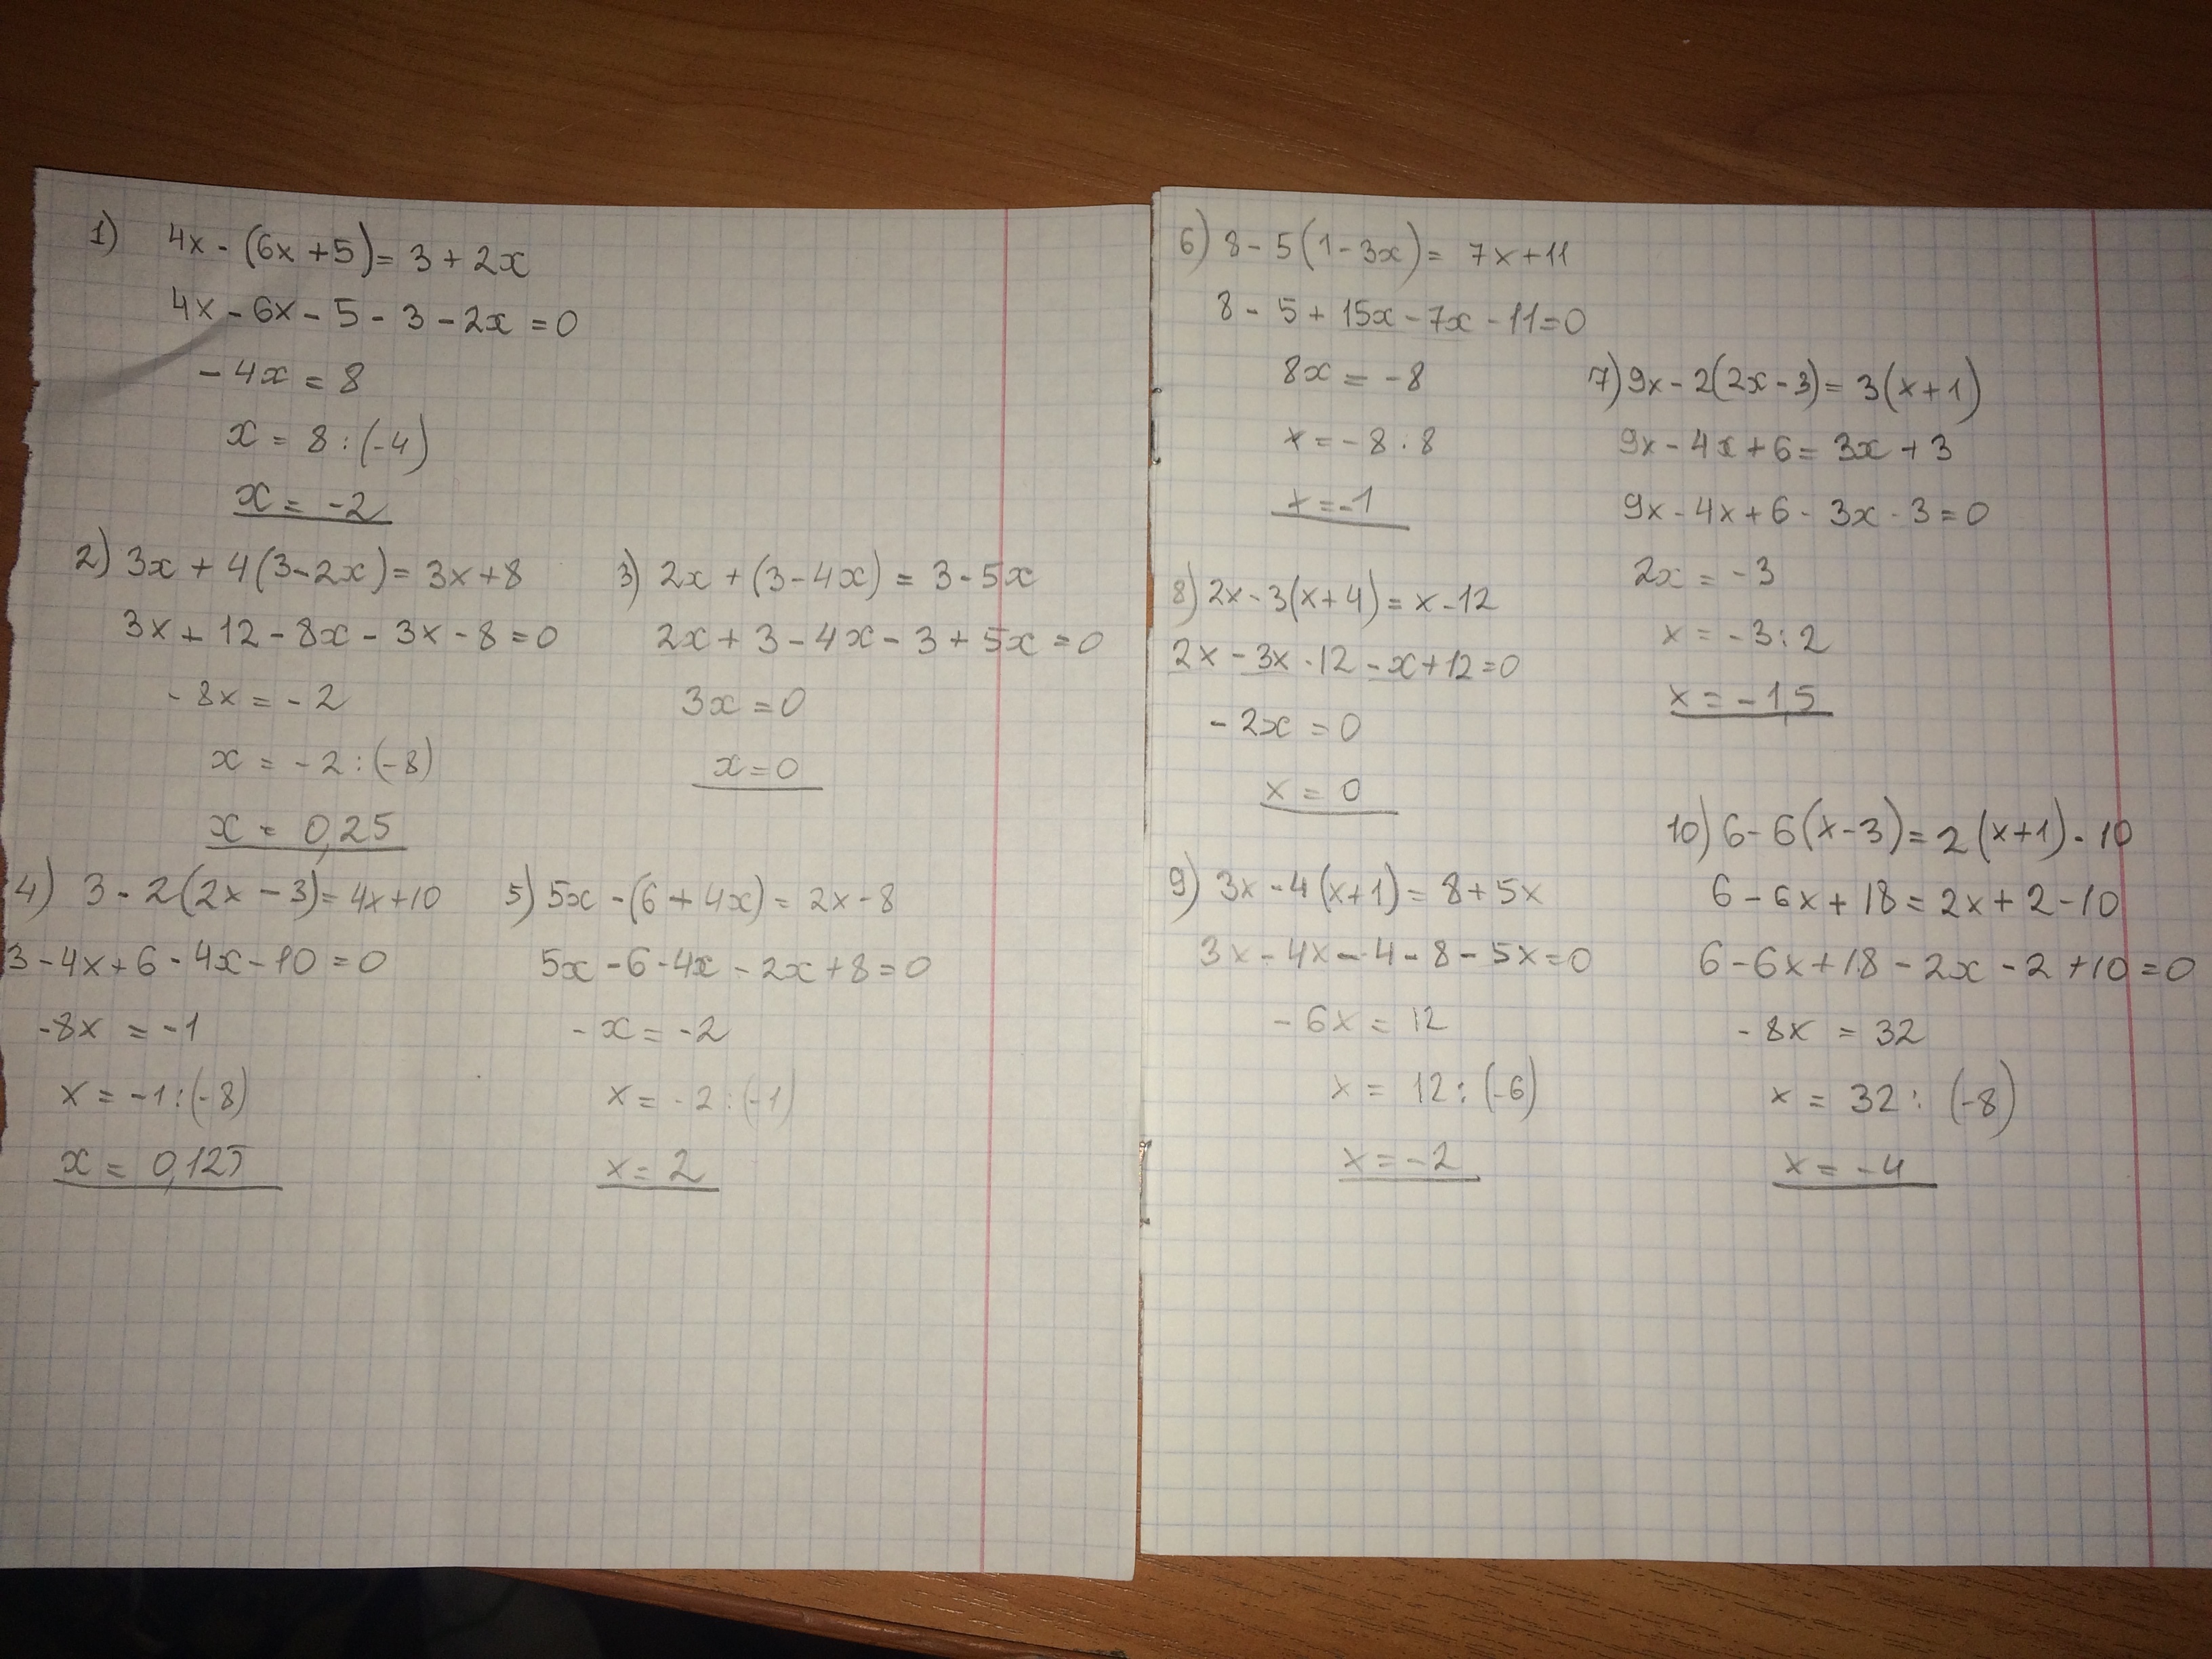 1) 4x - (6x + 5) = 3 + 2x
4x - 6x - 5 - 3 - 2x = 0
- 4x = 8
x = 8 : (-4)
x = -2
2) 3x + 4(3 - 2x) = 3x + 8
3x + 12 - 8x - 3x - 8 = 0
- 8x = - 2
x = - 2 : (-8)
x = 0,25
3) 2x + (3 - 4x) = 3 - 5x
2x + 3 - 4x - 3 + 5x = 0
3x = 0
x = 0
4) 3 - 2(2x - 3) = 4x + 10
3 - 4x + 6 - 4x - 10 = 0
-8x = -1
x = -1 : (-8)
x = 0,125
5) 5x - (6 + 4x) = 2x - 8
5x - 6 - 4x - 2x + 8 = 0
- x = -2
x = -2 : (-1)
x = 2
6) 8 - 5(1 - 3x) = 7x + 11
8 - 5 + 15x - 7x - 11 = 0
8x = -8
x = -8 : 8
x = -1
7) 9x - 2(2x - 3) = 3(x + 1)
9x - 4x + 6 = 3x + 3
9x - 4x + 6 - 3x - 3 = 0
2x = -3
x = -3 : 2
x = -1,5
8) 2x - 3(x + 4) = x - 12
2x - 3x - 12 - x + 12 = 0
- 2x = 0
x = 0
9) 3x - 4(x + 1) = 8 + 5x
3x - 4x - 4 - 8 - 5x = 0
- 6x = 12
x = 12 : (-6)
x = -2
10) 6 - 6(x - 3) = 2(x + 1) - 10
6 - 6x + 18 = 2x + 2 - 10
6 - 6x + 18 - 2x - 2 + 10 = 0
- 8x = 32
x = 32 : (-8)
x = -4